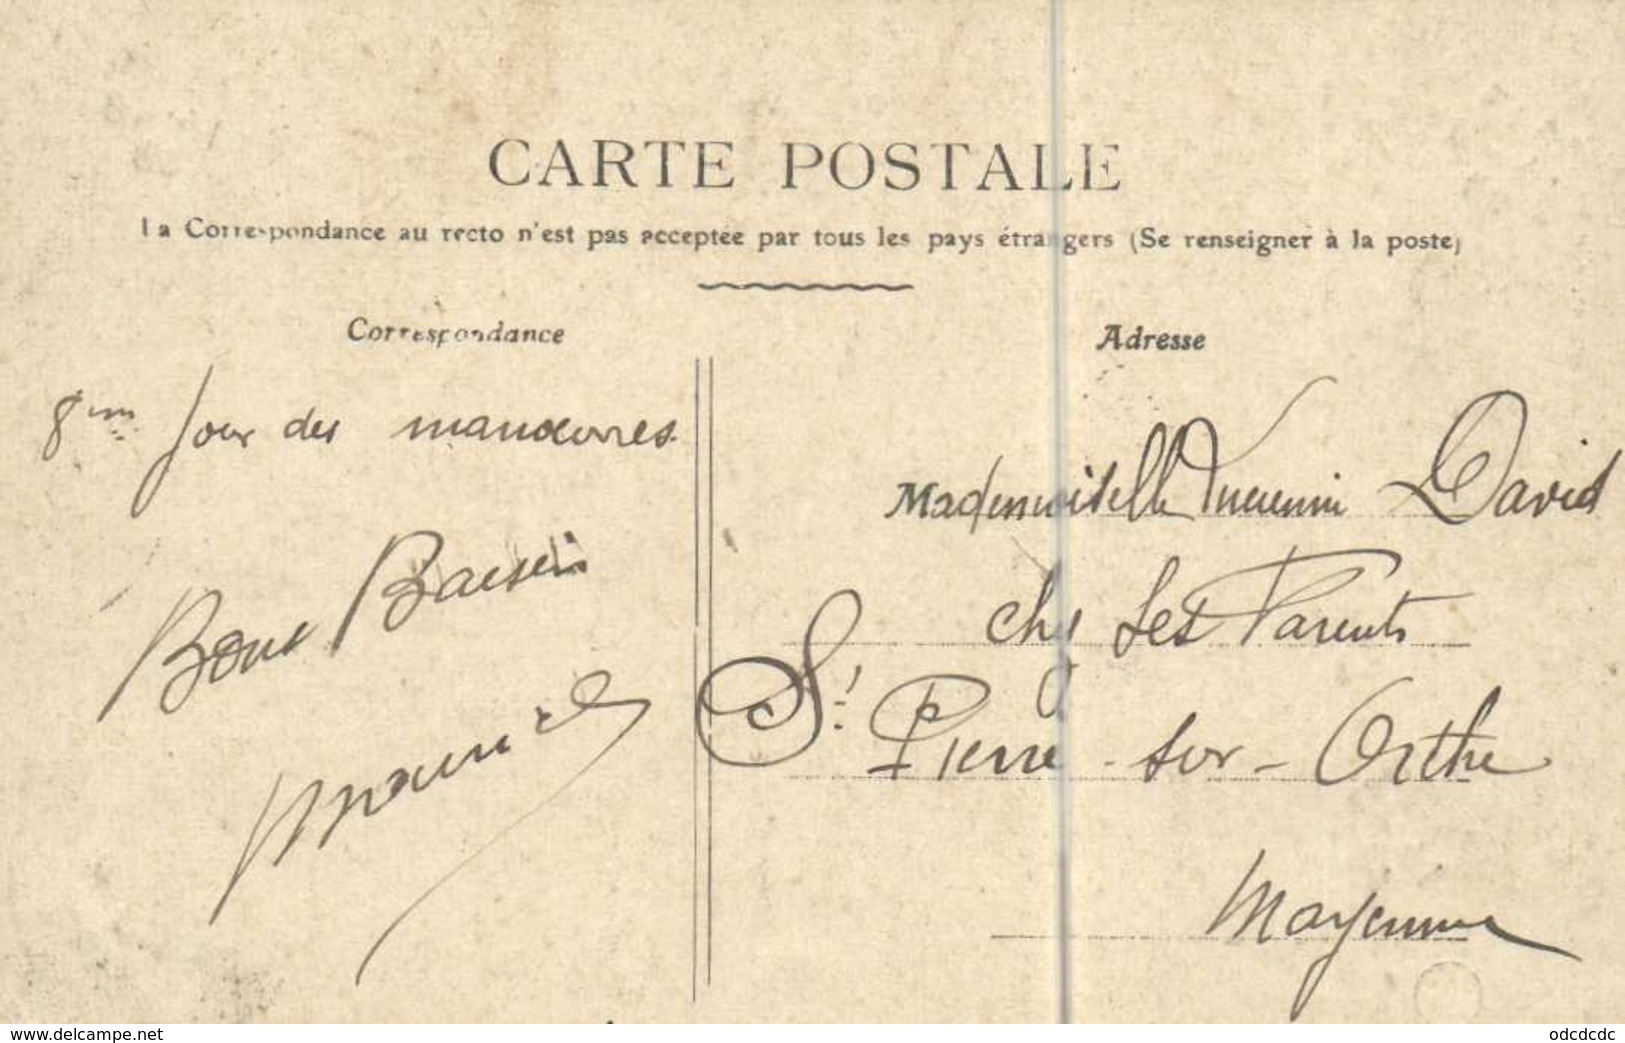 CARTE POSTALE
La Correspondance au recto n'est pas acceptée par tous les pays étrangers (Se renseigner à la poste)
Correspondance
8ème Jour des manœuvres
Bons Baisers
Maurice
Adresse
Mademoiselle David
chez Ses Parents
St Pierre-sur-Orthe
Mayenne
www.delcampe.net
odcdcdc